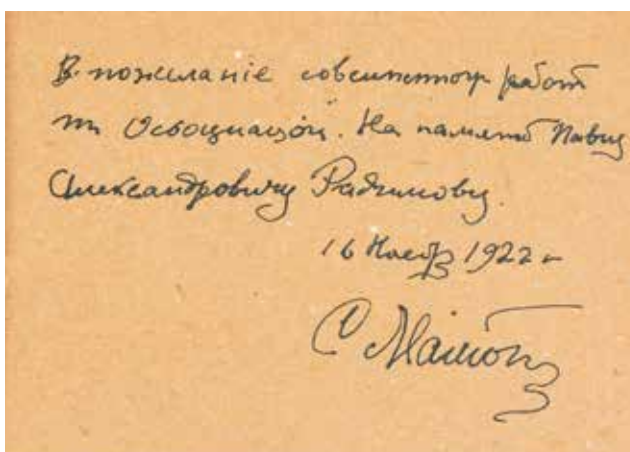 В пожеланіе совместной работ
На память Павлу
Александровичу Радимову.
16 Нояб 1922 г
С Малютин